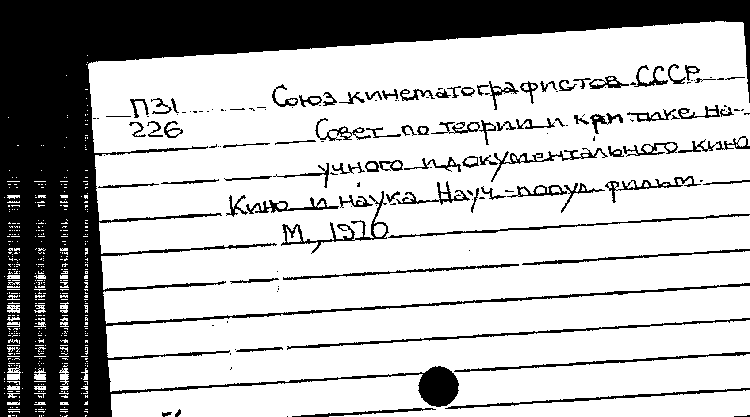 П31 Союз кинематографистов СССР.
226 Совет по теории и критике на-
учного и документального кино
Кино и наука. Науч.-попул. фильм.
М., 1970